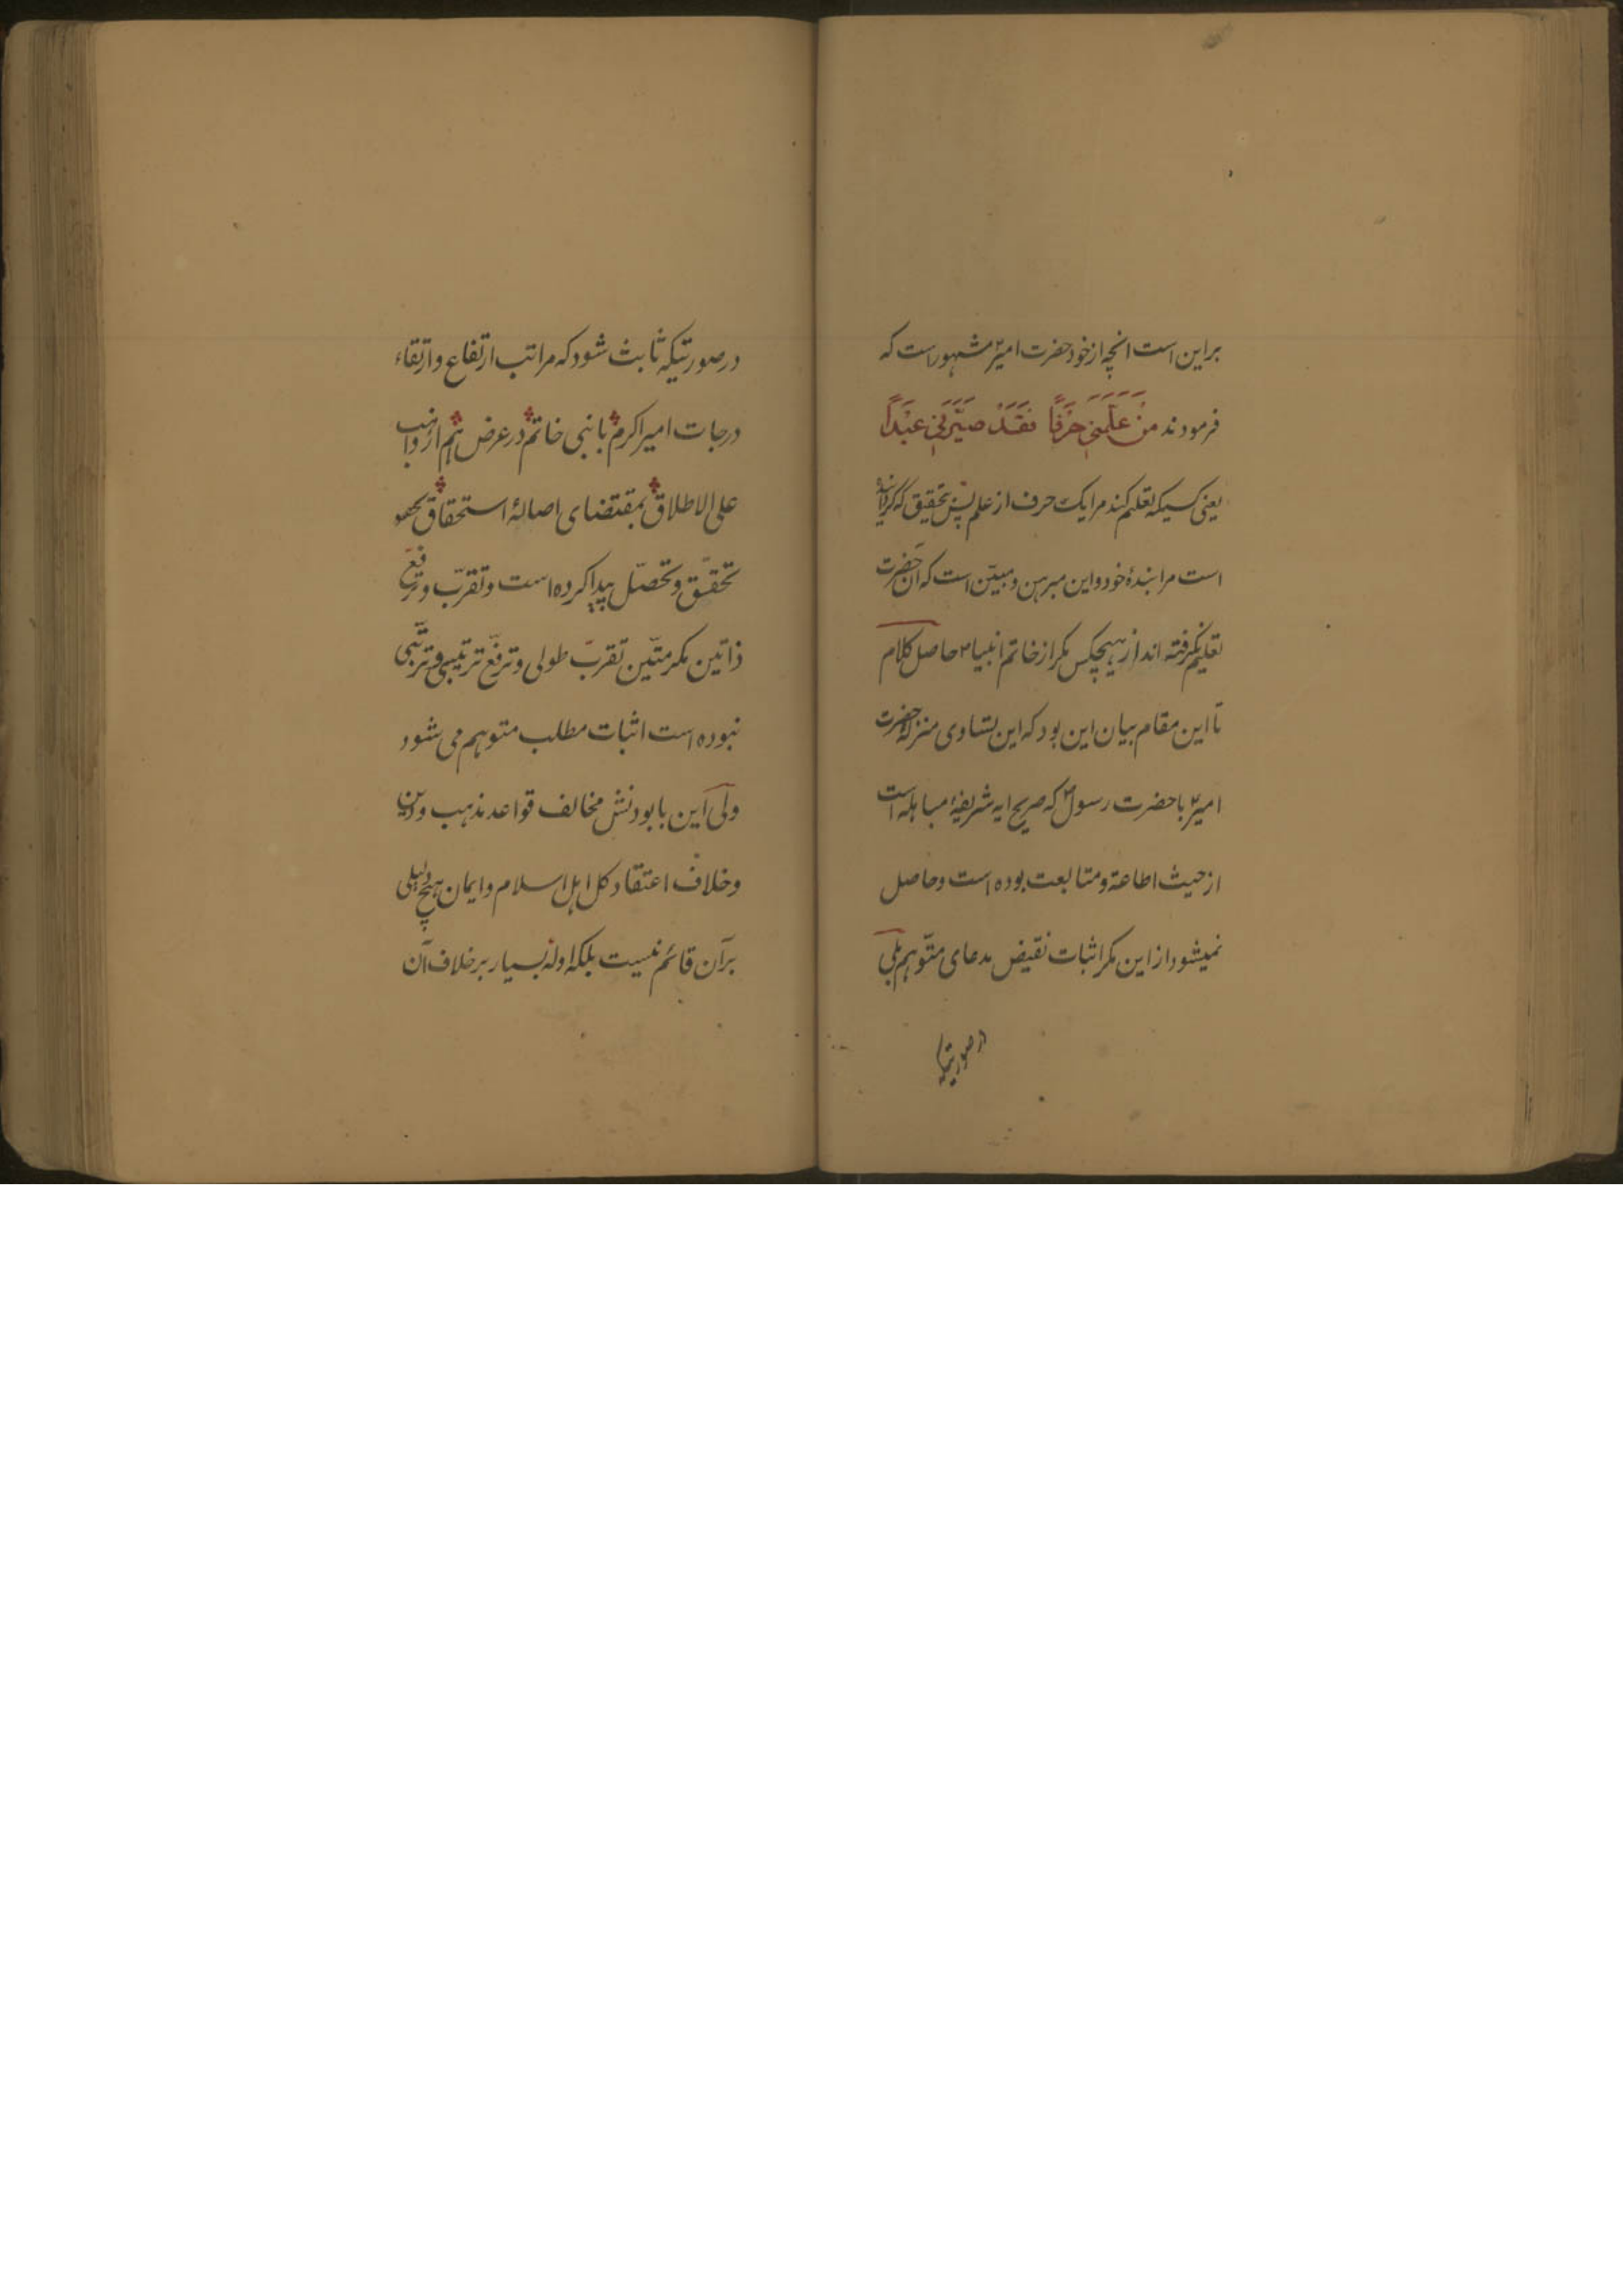 بر این است انچه از خود حضرت امیر؏ مشهور است که
فرمودند مَنْ عَلَّمَنِی حَرْفًا فَقَدْ صَیَّرَنِی عَبْدًا
یعنی کسیکه تعلیم کند مرا یک حرف از علم پس بتحقیق که گردانیده
است مرا بندهٔ خود و این مبرهن و مبیّن است که آن حضرت
تعلیم نگرفته اند از هیچکس مگر از خاتم انبیا؏ حاصل کلام
تا این مقام بیان این بود که این تساوی منزلهٔ حضرت
امیر؏ با حضرت رسول؏ که صریح ایه شریفهٔ مباهله است
از حیث اطاعة و متابعت بوده است و حاصل
نمیشود از این مگر اثبات نقیض مدعای متوّهم بلی
در صورتیکه
در صورتیکه ثابت شود که مراتب ارتفاع و ارتقاء
درجات امیر اکرم با نبی خاتم در عرض هم از واهب
علی الاطلاق بمقتضای اصالهٔ استحقاق بنحو
تحقّق و تحصّل پیدا کرده است و تقرّب و ترفّع
ذاتین مکرمتّین تقربّ طولی و ترفّع ترتیبی و ترتّبی
نبوده است اثبات مطلب متوهم می شود
ولی این با بودنش مخالف قواعد مذهب و دین
و خلاف اعتقاد کل اهل اسلام و ایمان هیچ دلیلی
بر آن قائم نیست بلکه ادله بسیار بر خلاف آن